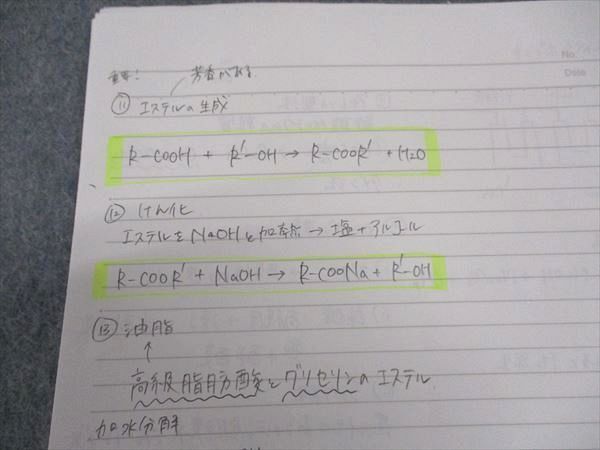 No.
Date
重要! 芳香がある.
⑪ エステルの生成
R-COOH + R'-OH → R-COOR' + H2O
⑫ けん化
エステルを NaOHと加熱 → 塩 + アルコール
R-COOR' + NaOH → R-COONa + R'-OH
⑬ 油脂
↑
高級脂肪酸とグリセリンのエステル
加水分解